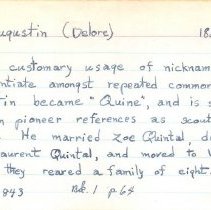 ugustin (Delore) 18
customary usage of nicknam
entiate amongst repeated common
tin became "Quine", and is s
n pioneer references as scout
. He married Zoe Quintal, d
aurent Quintal, and moved to
they reared a family of eight.
1843 Bk. 1 p 64